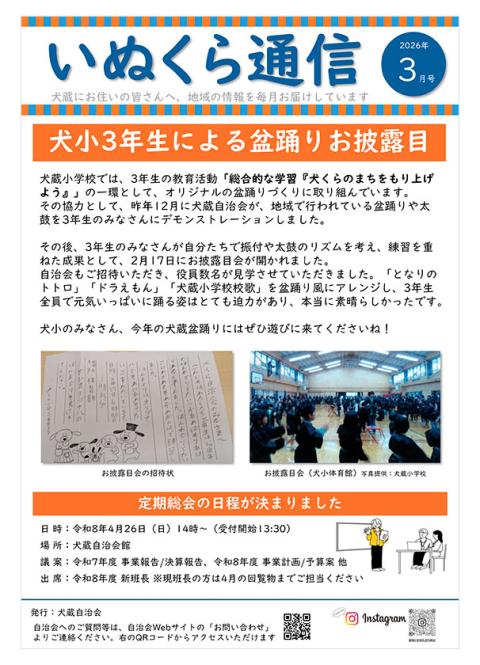 いぬくら通信
2026年
3月号
犬蔵にお住いの皆さんへ、地域の情報を毎月お届けしています
犬小3年生による盆踊りお披露目
犬蔵小学校では、3年生の教育活動「総合的な学習『犬くらのまちをもり上げ
よう』」の一環として、オリジナルの盆踊りづくりに取り組んでいます。
その協力として、昨年12月に犬蔵自治会が、地域で行われている盆踊りや太
鼓を3年生のみなさんにデモンストレーションしました。
その後、3年生のみなさんが自分たちで振付や太鼓のリズムを考え、練習を重
ねた成果として、2月17日にお披露目会が開かれました。
自治会もご招待いただき、役員数名が見学させていただきました。「となりの
トトロ」「ドラえもん」「犬蔵小学校校歌」を盆踊り風にアレンジし、3年生
全員で元気いっぱいに踊る姿はとても迫力があり、本当に素晴らしかったです。
犬小のみなさん、今年の犬蔵盆踊りにはぜひ遊びに来てくださいね！
お披露目会の招待状
お披露目会（犬小体育館）写真提供：犬蔵小学校
定期総会の日程が決まりました
日 時：令和8年4月26日（日）14時～（受付開始13:30）
場 所：犬蔵自治会館
議 案：令和7年度 事業報告/決算報告、令和8年度 事業計画/予算案 他
出 席：令和8年度 新班長 ※現班長の方は4月の回覧物までご担当ください
発行：犬蔵自治会
自治会へのご質問等は、自治会Webサイトの「お問い合わせ」
よりご連絡ください。右のQRコードからアクセスいただけます
Instagram